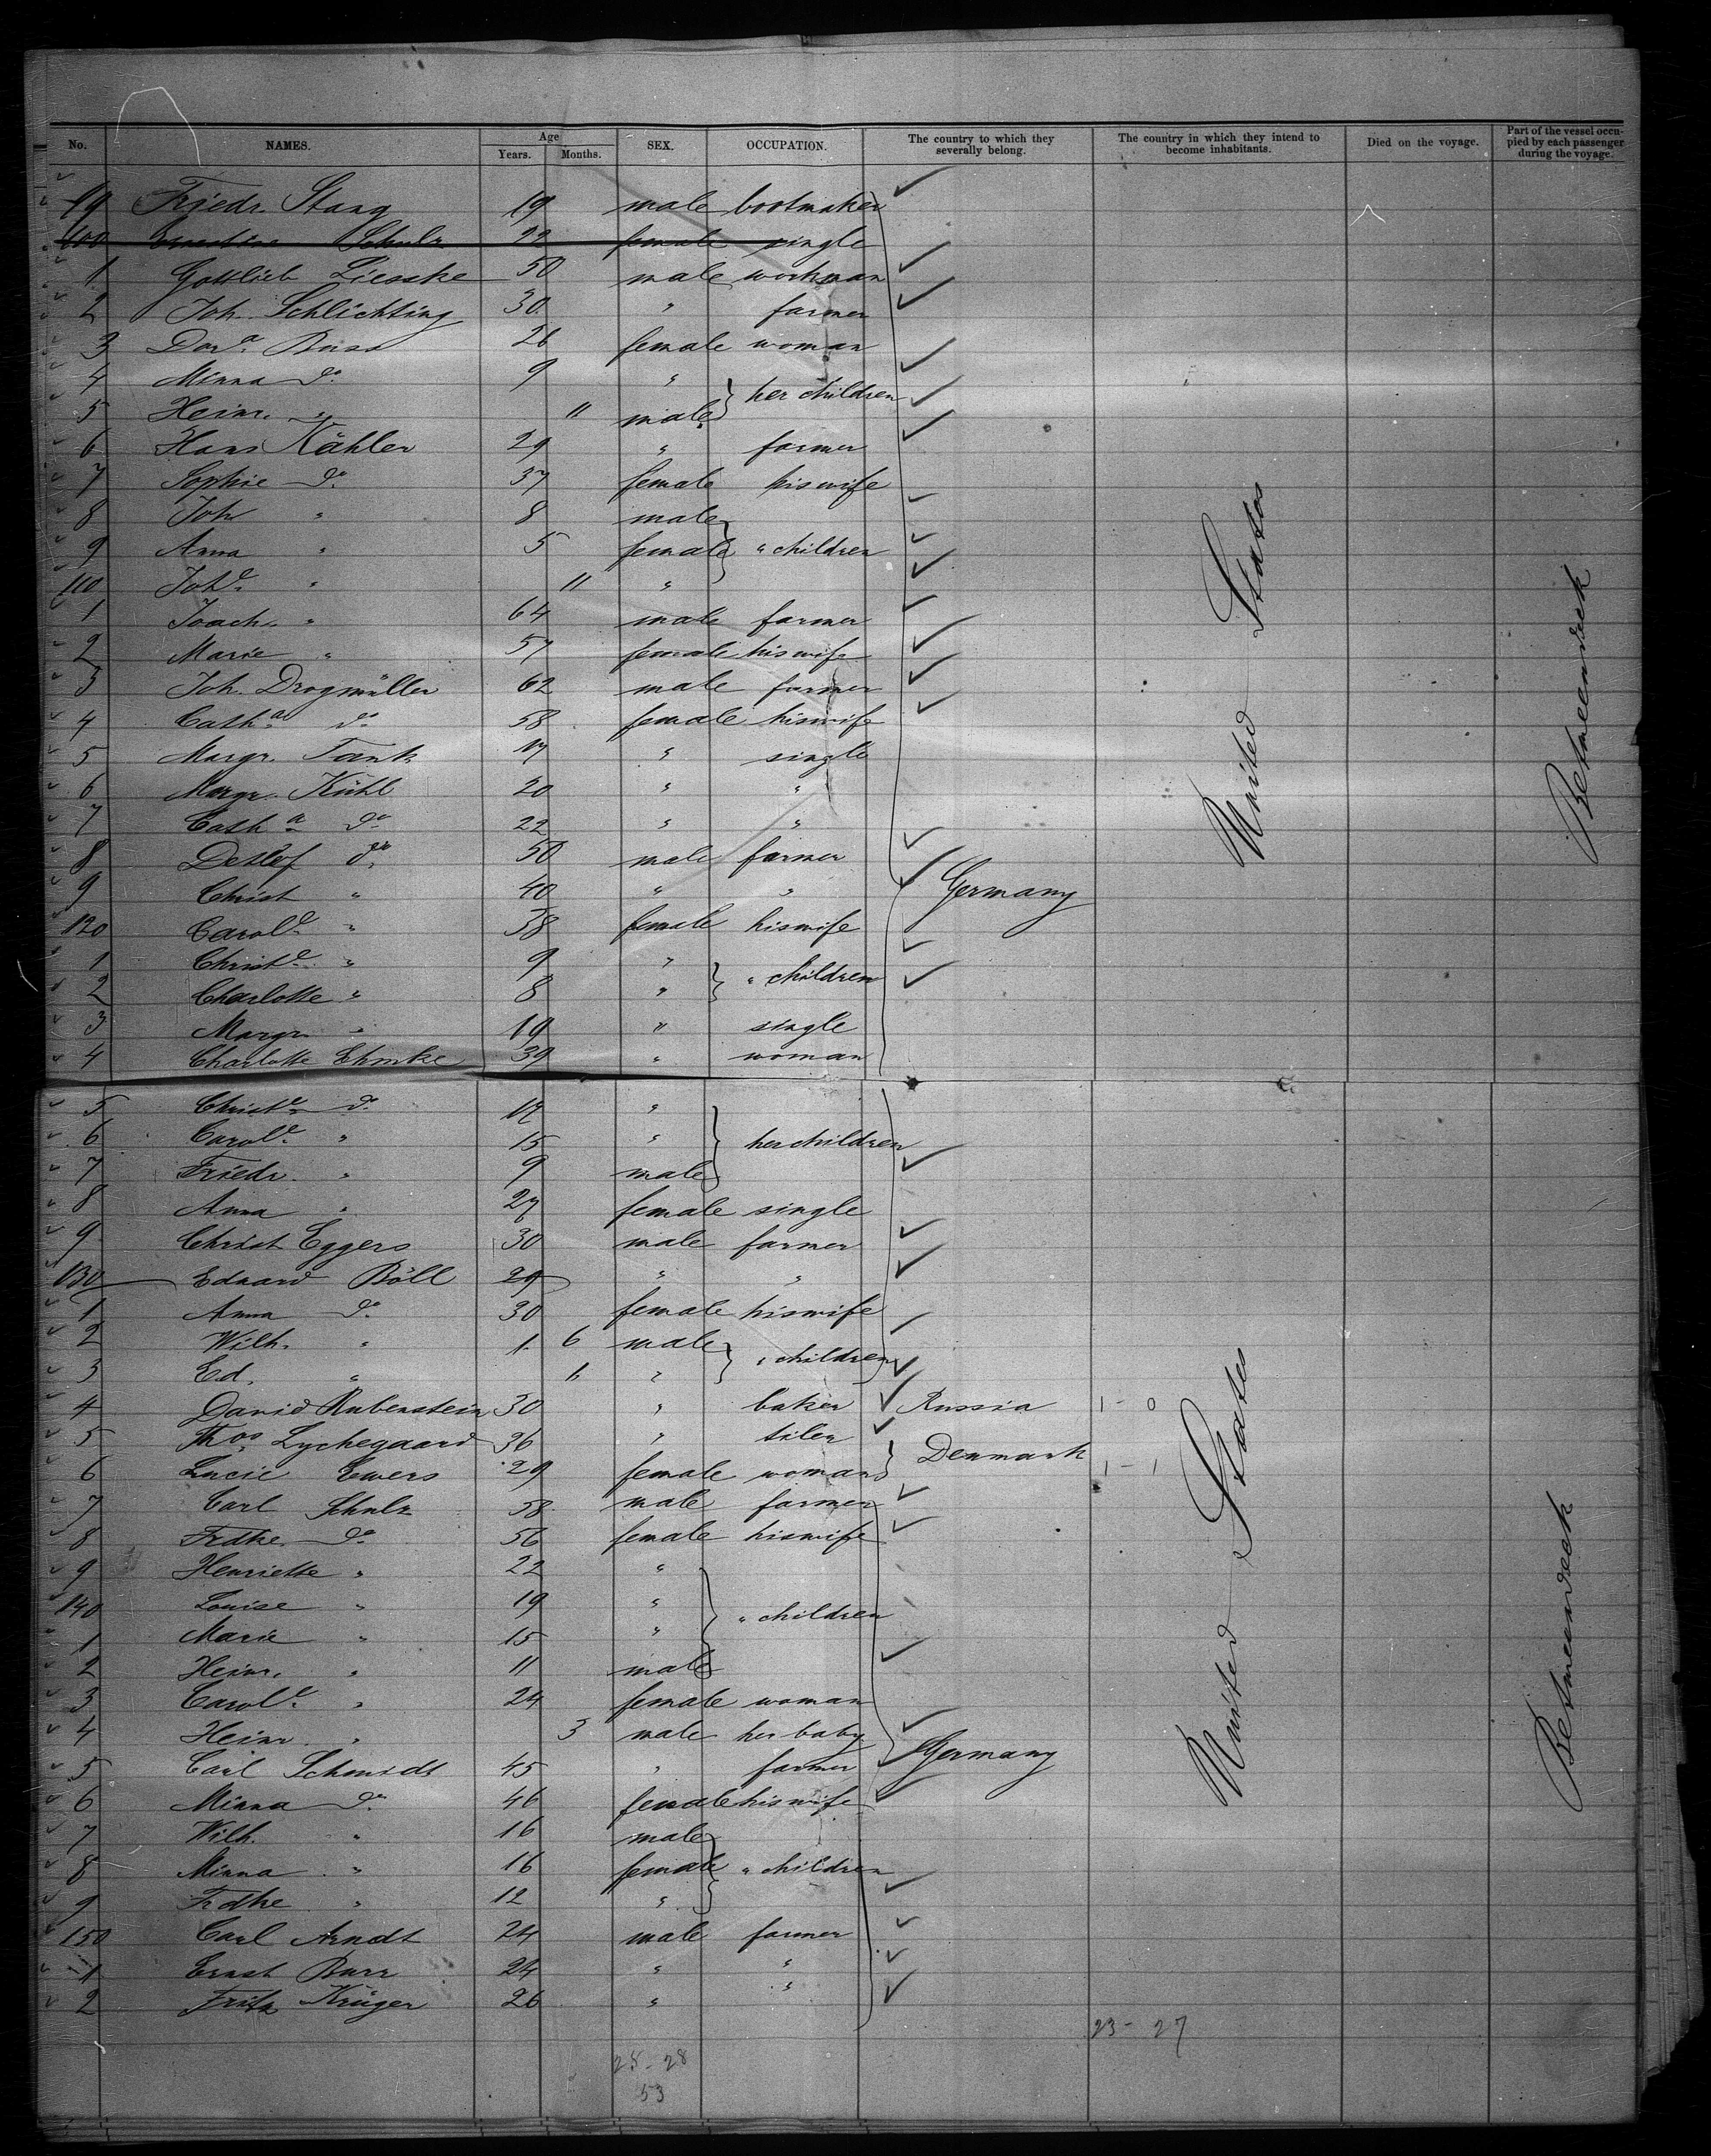 No. NAMES. Age Years. Months. SEX. OCCUPATION. The country to which they severally belong. The country in which they intend to become inhabitants. Died on the voyage. Part of the vessel occupied by each passenger during the voyage.
19 Friedr. Stang 19 male bootmaker
100 Ernestine Schulz 22 female single
1 Gottlieb Liesske 50 male workman
2 Joh. Schlichting 30 " farmer
3 Dora. 26 female woman
4 Minna do. 9 " her children
5 Heinr. " 11 male
6 Hans Kähler 29 " farmer
7 Sophie do. 37 female his wife
8 Joh " 8 male
9 Anna " 5 female " children
110 Johe. " 11 "
1 Joach. " 64 male farmer
2 Marie " 57 female his wife
3 Joh. Drogmüller 62 male farmer
4 Catha. do. 58 female his wife
5 Margr. Tank 17 " single
6 Margr. Kühl 20 " "
7 Catha do. 22 " "
8 Detlof do. 50 male farmer
9 Christ " 40 " " Germany
120 Carole. " 38 female his wife
1 Christe. " 9 " " children
2 Charlotte " 8 "
3 Margr. " 19 " single
4 Charlotte Ehmke 39 " woman
5 Christe. do. 17 "
6 Carole. " 15 " her children
7 Friedr. " 9 male
8 Anna " 27 female single
9 Christ Eggers 30 male farmer
130 Eduard Böll 29 " "
1 Anna do. 30 female his wife
2 Wilh. " 1. 6 male " children
3 Ed. " 6 "
4 David Rubenstein 30 " baker Russia 1 - 0
5 Thos. Lychegaard 36 " tiler Denmark
6 Lucie Ewers 29 female woman 1 - 1
7 Carl Schulz 58 male farmer
8 Frdke. do. 56 female his wife
9 Henriette " 22 "
140 Louise " 19 " " children
1 Marie " 15 "
2 Heinr. " 11 male
3 Carole. " 24 female woman
4 Heinr. " 3 male her baby
5 Carl Schmidt 45 " farmer Germany
6 Minna do. 46 female his wife
7 Wilh. " 16 male
8 Minna " 16 female " children
9 Frdke " 12 "
150 Carl Arndt 24 male farmer
1 Ernst Burr 24 " "
2 Fritz Krüger 26 " "
United States
Betweendeck
United States
Betweendeck
23 - 27
25 - 28
53